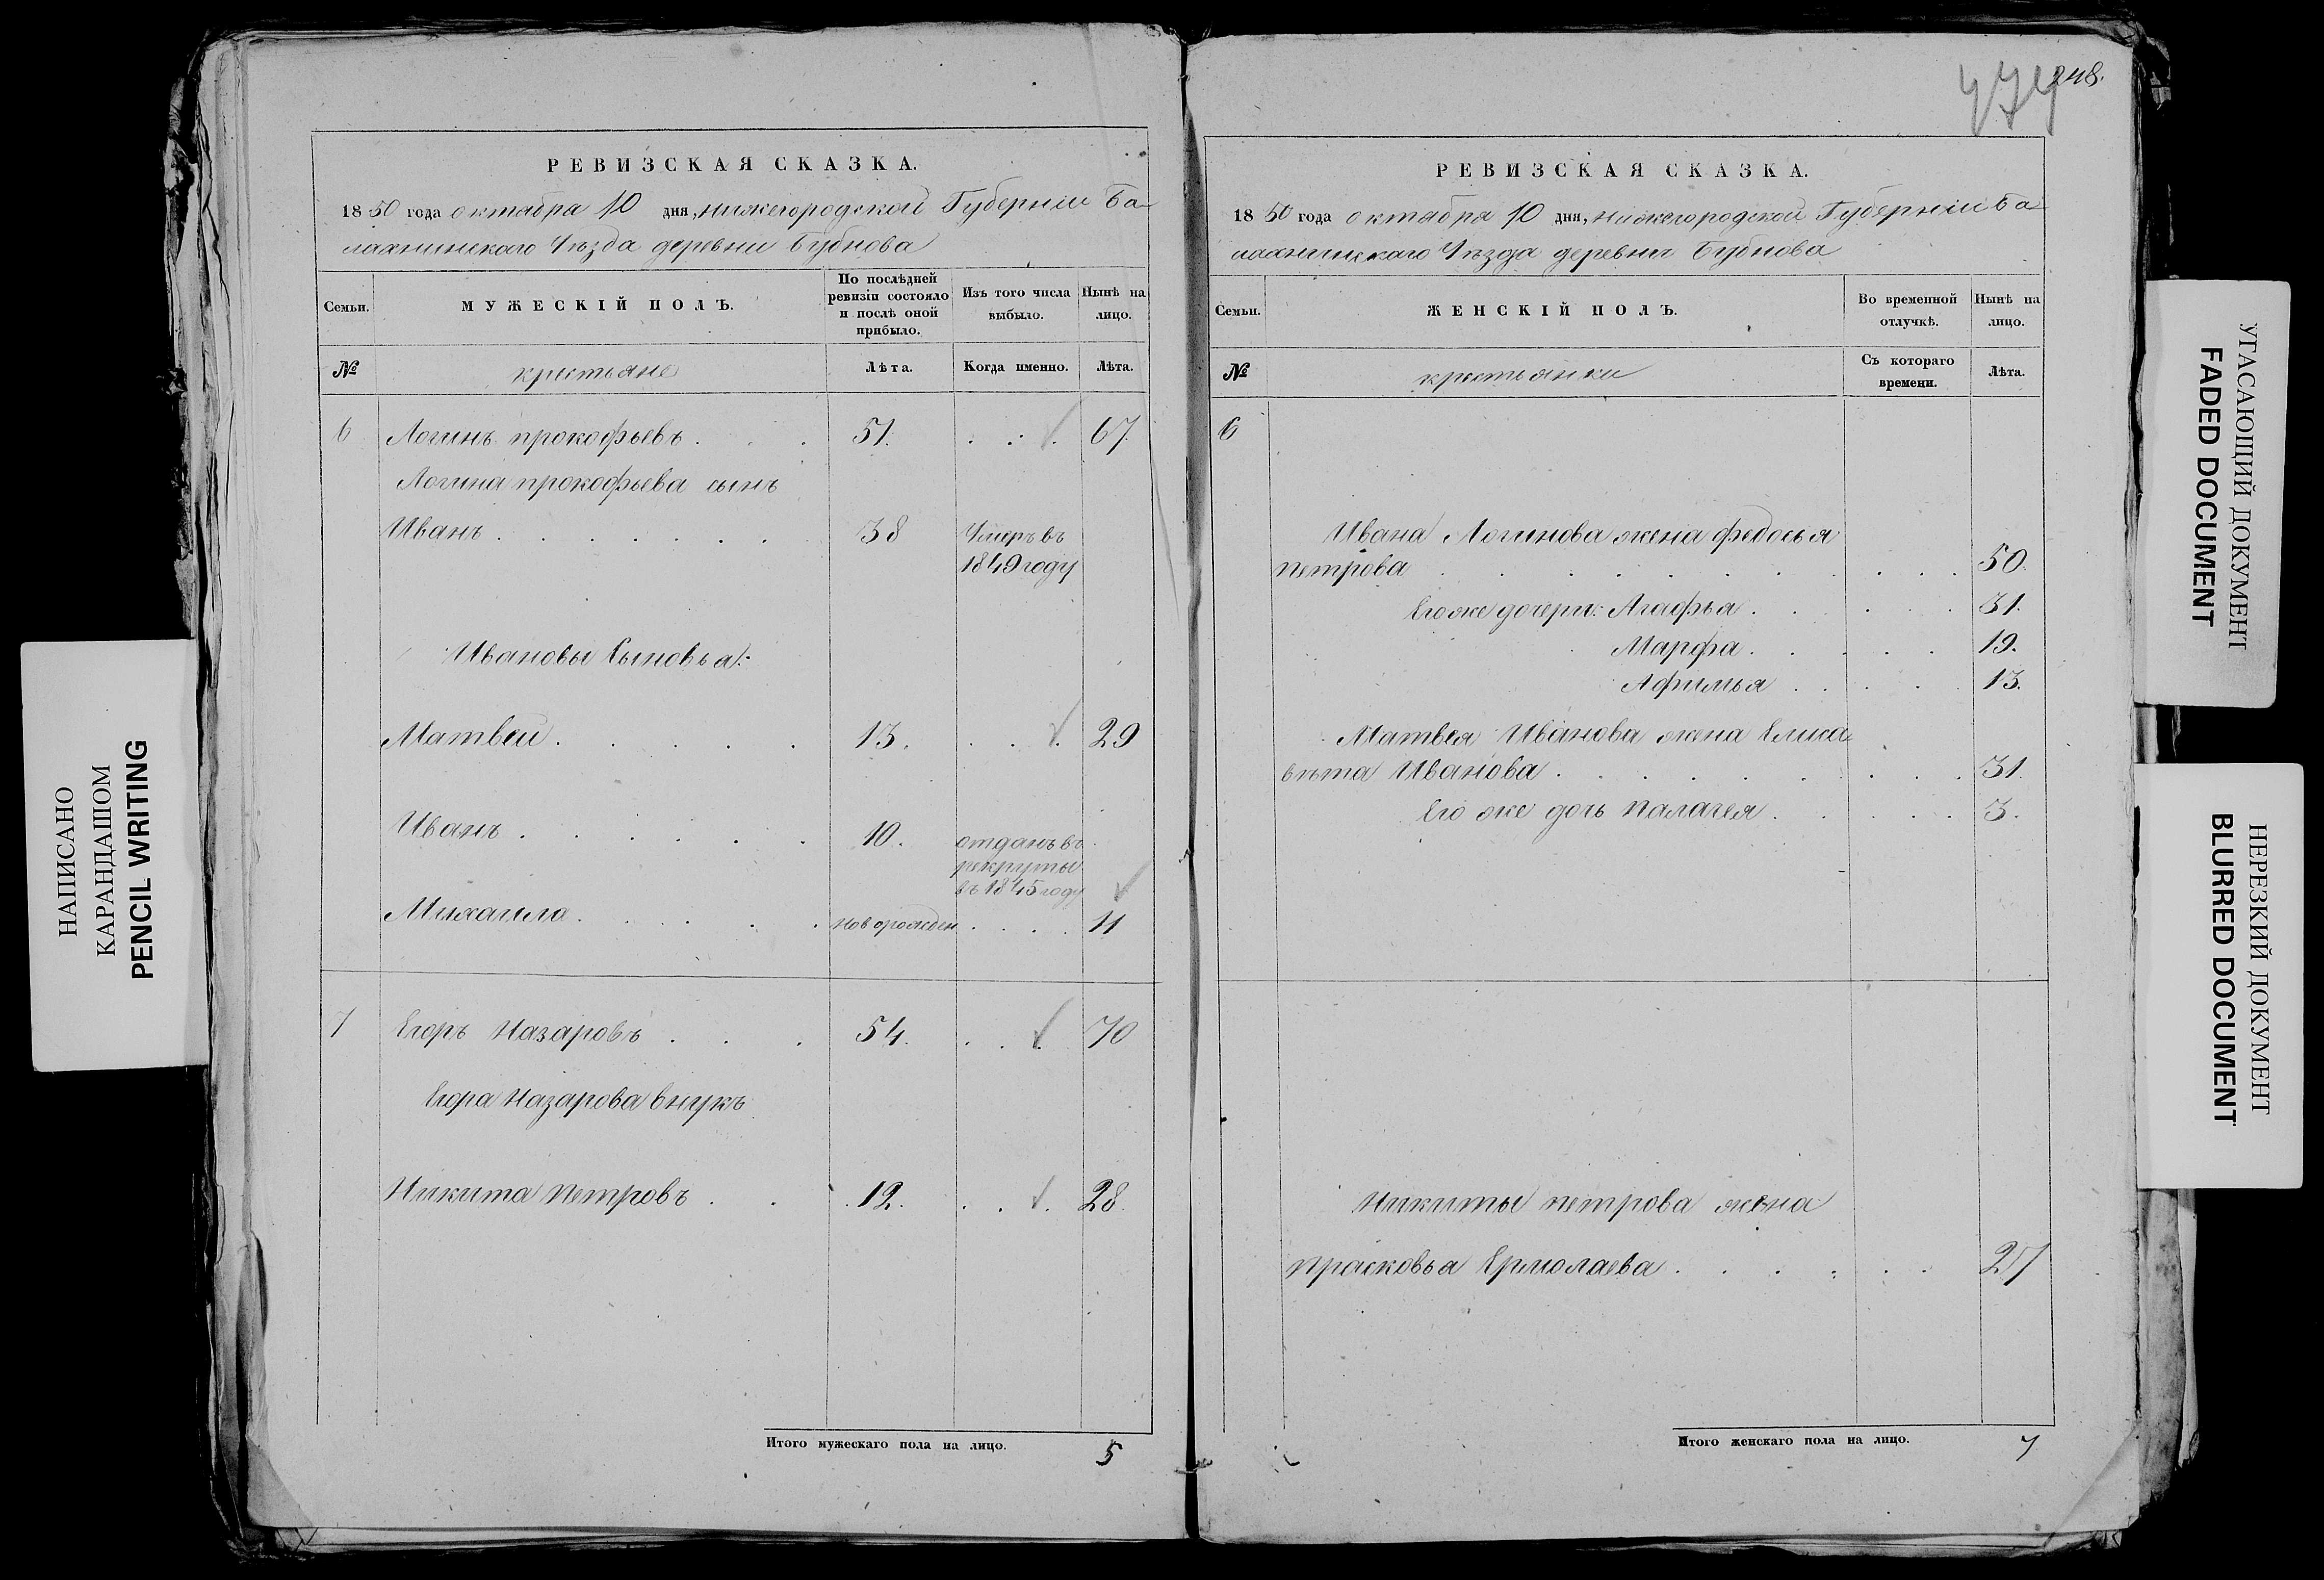 РЕВИЗСКАЯ СКАЗКА.
1850 года октября 10 дня, Нижегородской Губерніи Ба-
лахнинскаго Уѣзда деревни Бубнова
Семьи.
МУЖЕСКІЙ ПОЛЪ.
По послѣдней ревизіи состояло и послѣ оной прибыло.
Изъ того числа выбыло.
Нынѣ на лицо.
№
крестьяне
Лѣта.
Когда именно.
Лѣта.
6 Логинъ прокофьевъ . . . 51. . . . 67.
Логина прокофьева сынъ
Иванъ . . . . . . 38 Умеръ въ
1849 году
Ивановы Сыновья:
Матвей . . . . . 13. . . . 29
Иванъ . . . . . 10. отданъ въ
рекруты
въ 1845 году
Михаила . . . . . новорожден . . . . 11
7 Егоръ Назаровъ . . . 54. . . . 70
Егора Назарова внукъ
Никита Петровъ . . . 12. . . . 28.
Итого мужескаго пола на лицо. 5
248.
РЕВИЗСКАЯ СКАЗКА.
1850 года октября 10 дня, Нижегородской Губерніи Ба
лахнинскаго Уѣзда деревни Бубнова
Семьи.
ЖЕНСКІЙ ПОЛЪ.
Во временной отлучкѣ.
Нынѣ на лицо.
№
крестьянки
Съ котораго времени.
Лѣта.
6
Ивана Логинова жена федосья
петрова . . . . . . . . . . 50.
Его же дочери: Агафья . . . . . 31.
Марфа . . . . . 19.
Афимья . . . . 13.
Матвея Иванова жена Елиса-
вѣта Иванова . . . . . . . . . 31.
Его же дочь палагея . . . . . 3.
Никиты петрова жена
прасковья Ермолаева . . . . . . 27
Итого женскаго пола на лицо. 7
НАПИСАНО
КАРАНДАШОМ
PENCIL WRITING
УГАСАЮЩИЙ ДОКУМЕНТ
FADED DOCUMENT
НЕРЕЗКИЙ ДОКУМЕНТ
BLURRED DOCUMENT